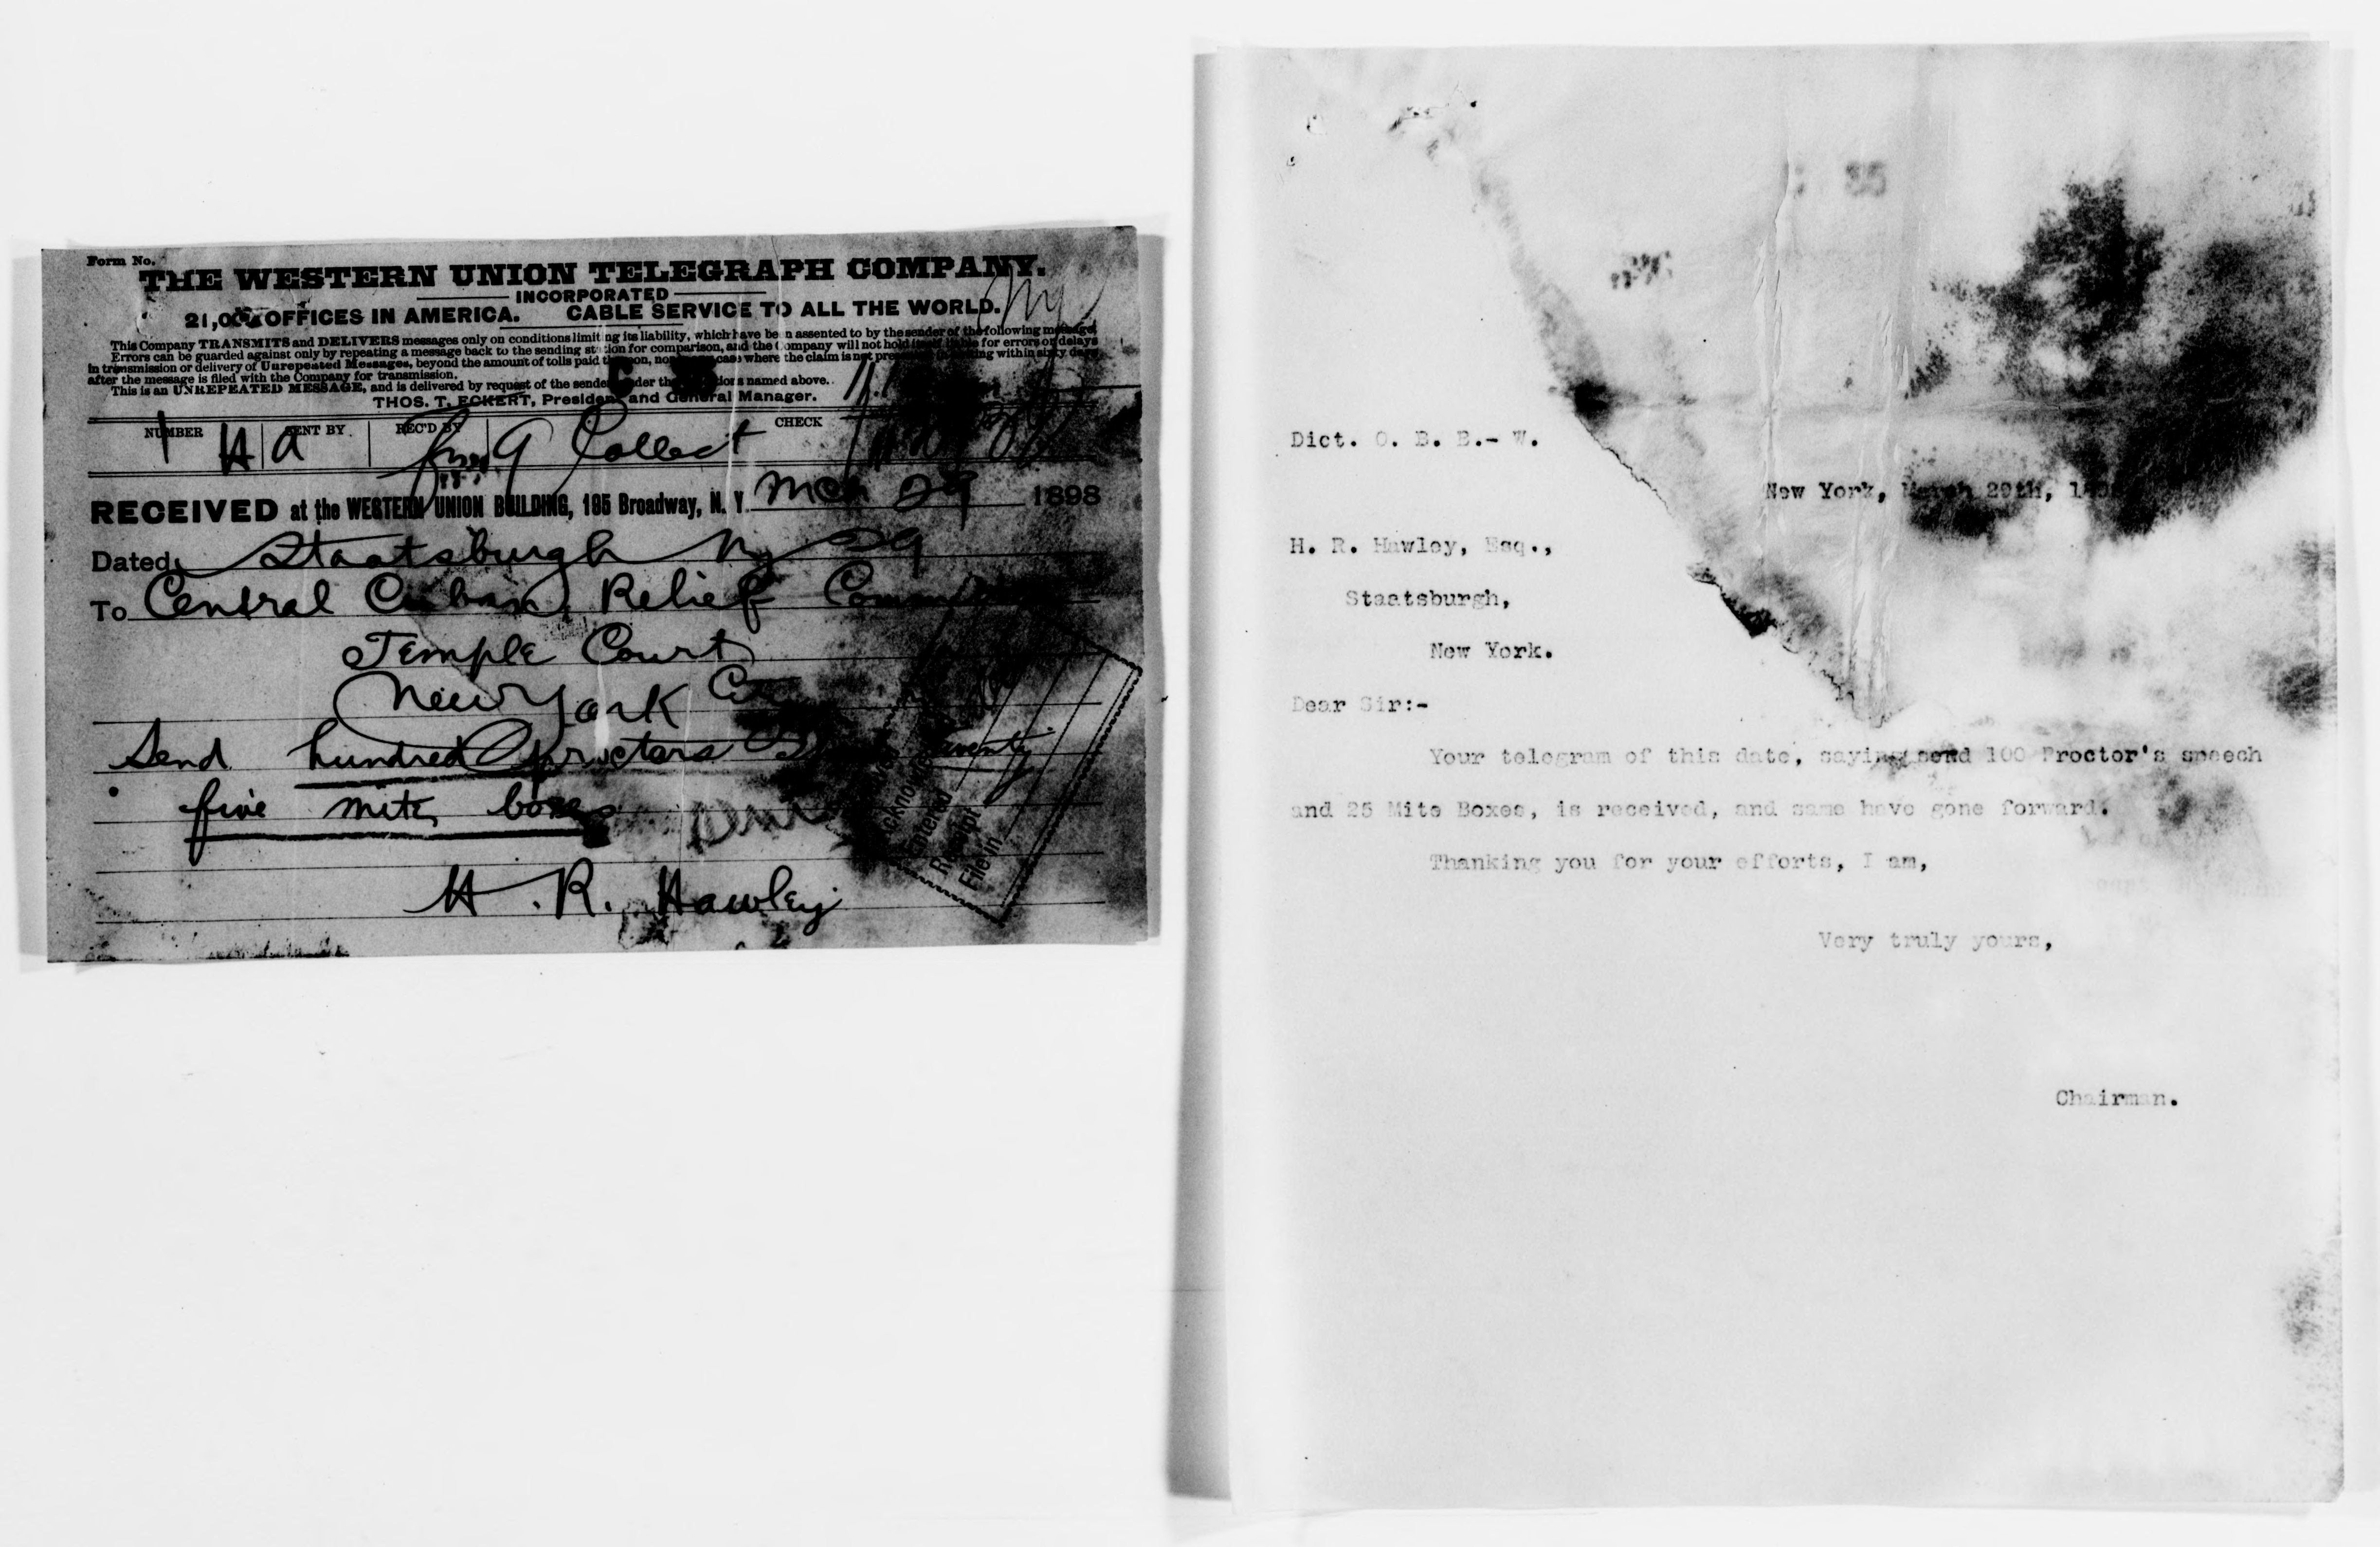 Form No.
THE WESTERN UNION TELEGRAPH COMPANY.
INCORPORATED
21,000 OFFICES IN AMERICA. CABLE SERVICE TO ALL THE WORLD.
This Company TRANSMITS and DELIVERS messages only on conditions limiting its liability, which have been assented to by the sender of the following message.
Errors can be guarded against only by repeating a message back to the sending station for comparison, and the Company will not hold itself liable for errors or delays
in transmission or delivery of Unrepeated Messages, beyond the amount of tolls paid thereon, nor in any case where the claim is not presented in writing within sixty days
after the message is filed with the Company for transmission.
This is an UNREPEATED MESSAGE, and is delivered by request of the sender, under the conditions named above.
THOS. T. ECKERT, President and General Manager.
NUMBER SENT BY REC'D BY CHECK
1 Ha Collect
RECEIVED at the WESTERN UNION BUILDING, 195 Broadway, N. Y. Mch 29 1898
Dated Staatsburgh Ny 29
To Central Cuban Relief
Temple Court
New York
Send hundred proctors twenty
five mite boxes
H. R. Hawley
Acknowledged
Entered
Receipt
File in
35
Dict. O. B. B.- W.
New York, March 29th,
H. R. Hawley, Esq.,
Staatsburgh,
New York.
Dear Sir:-
Your telegram of this date, saying send 100 Proctor's speech
and 25 Mite Boxes, is received, and same have gone forward.
Thanking you for your efforts, I am,
Very truly yours,
Chairman.